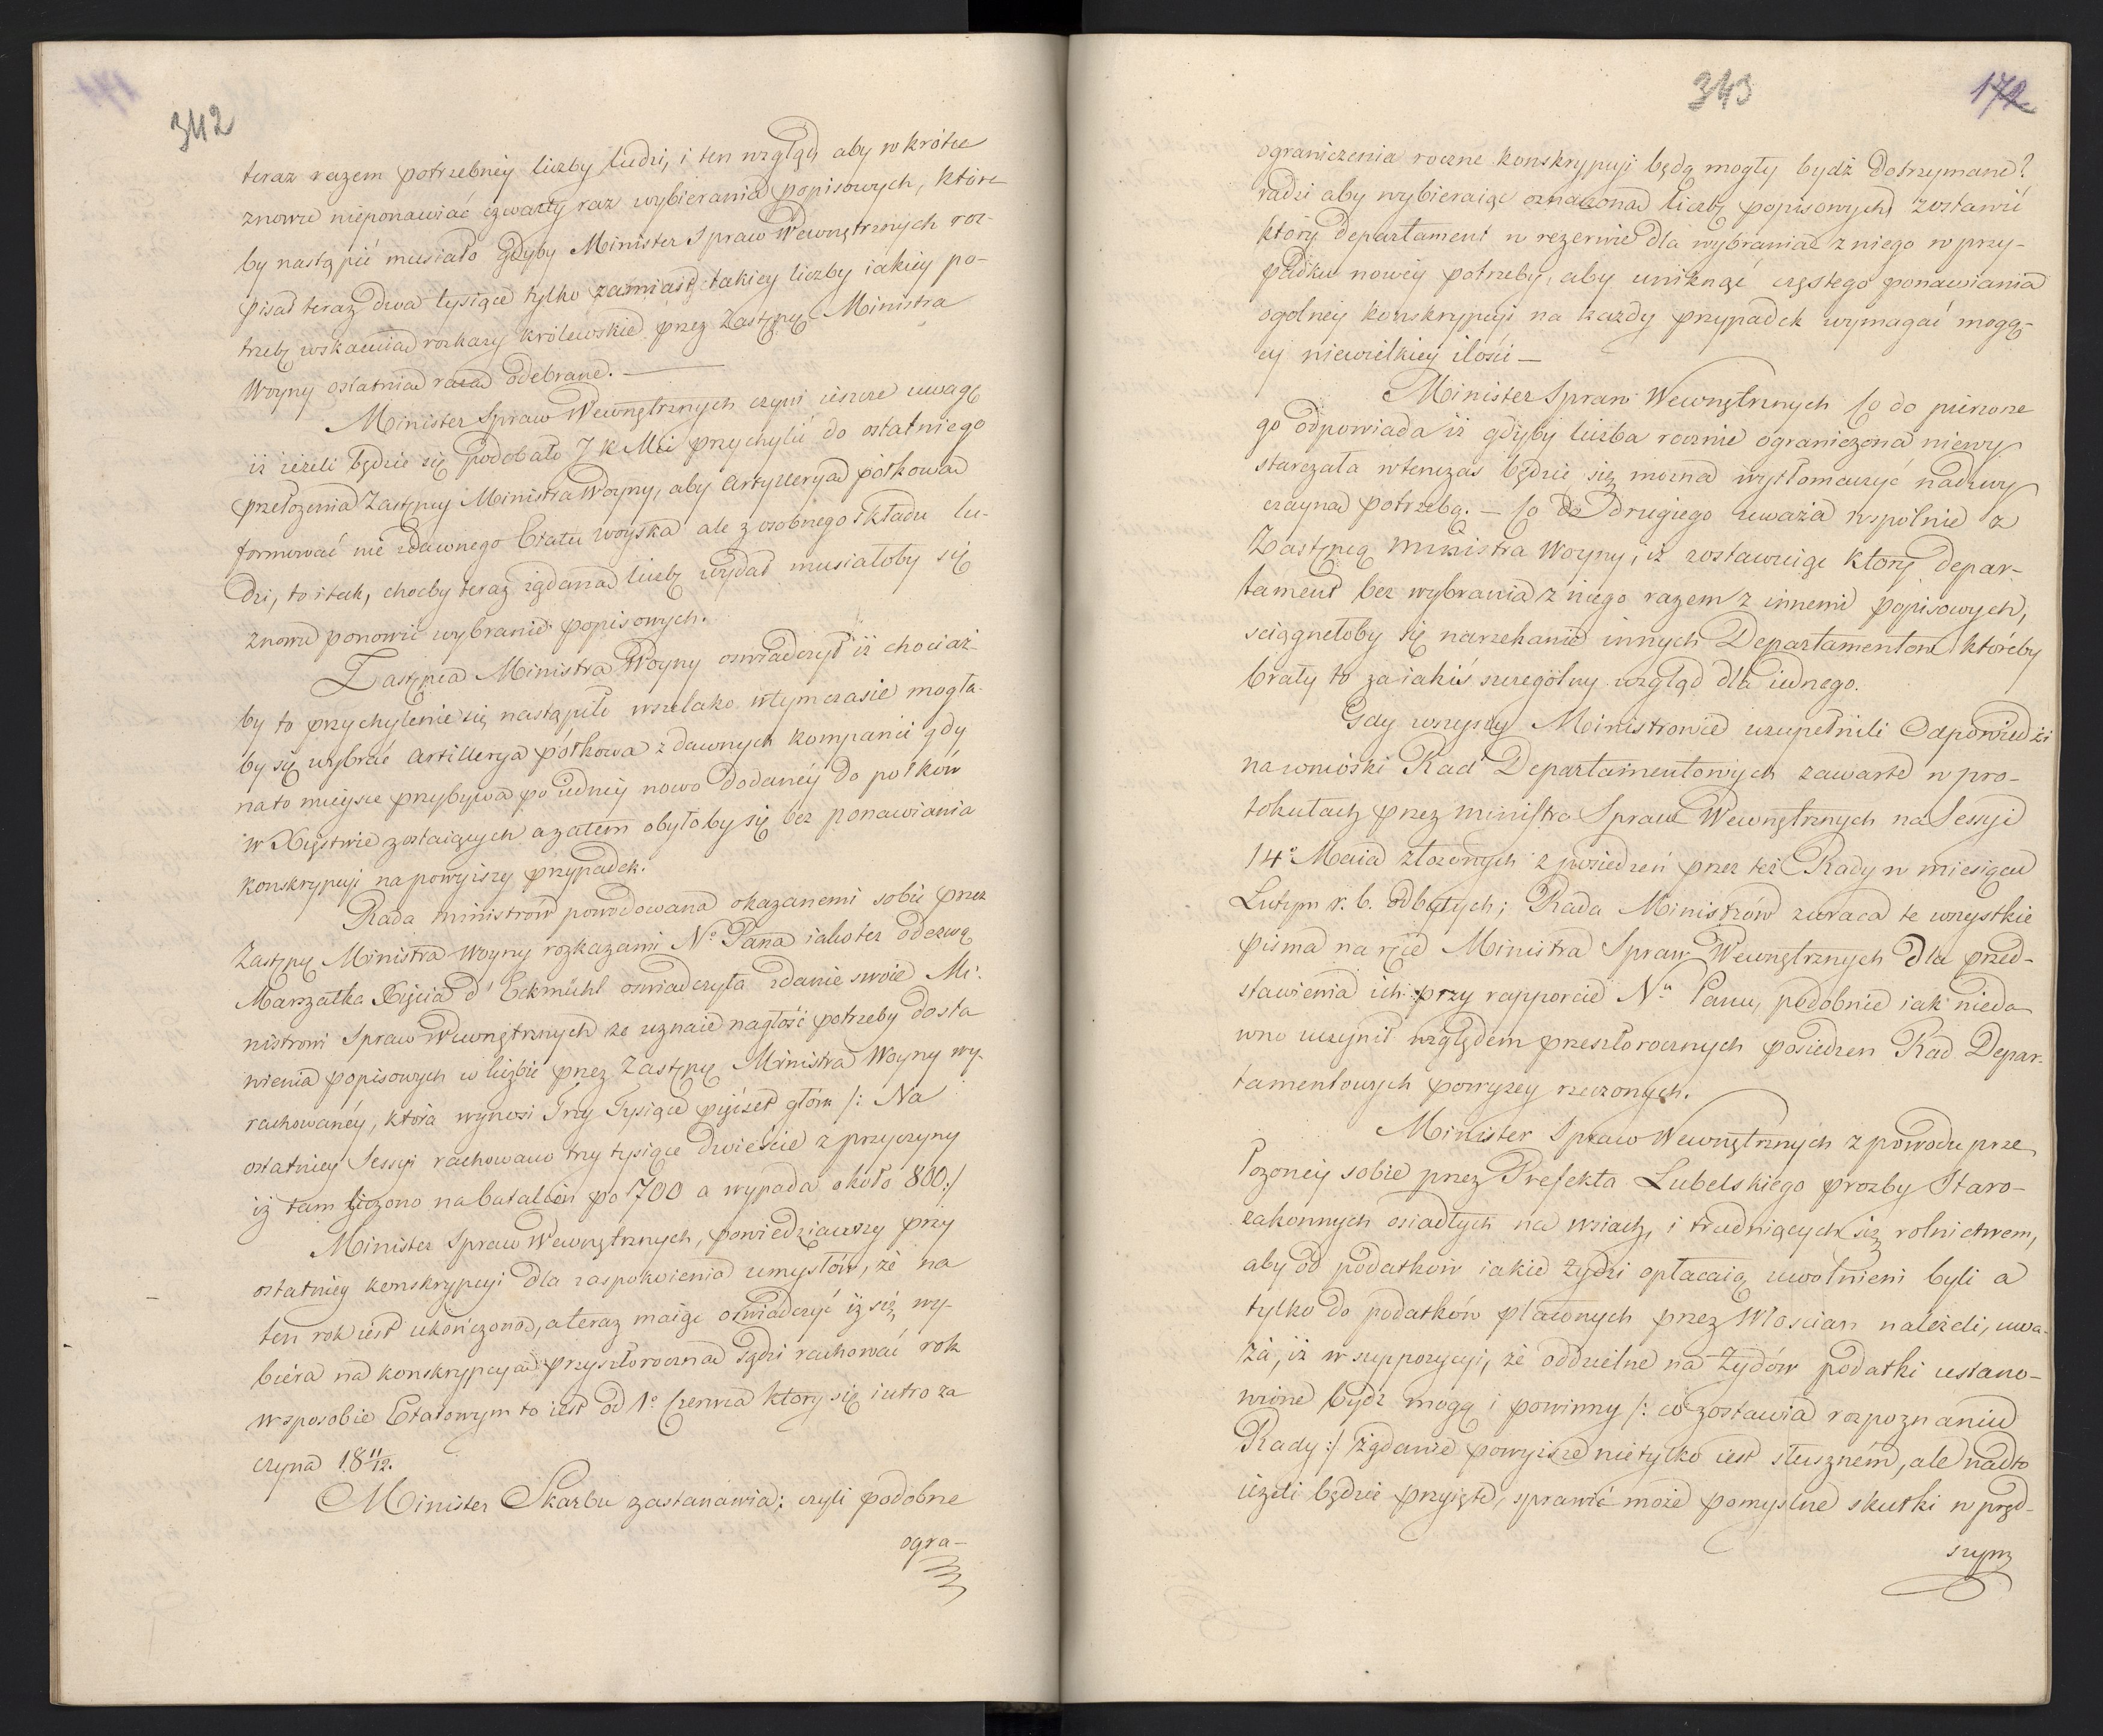 342
teraz razem potrzebney liczby ludzi, i ten wzgląd aby wkrótce
znowu nieponawiać czwarty raz wybierania popisowych, które
by nastąpić musiało gdyby Minister Spraw Wewnętrznych roz-
pisał teraz dwa tysiące tylko zamiast takiey liczby iakiey po-
trzebę wskazuią rozkazy królewskie przez Zastępcę Ministra
Woyny ostatnią razą odebrane. —
Minister Spraw Wewnętrznych czyni ieszcze uwagę
iż ieżeli będzie się podobało J K Mci przychylić do ostatniego
przełożenia Zastępcy Ministra Woyny, aby Artylleryą półkową
formować nie zdawnego Etatu woyska ale z osobnego składu lu-
dzi, to i tak, choćby teraz żądaną liczbę wydał musiałoby się
znowu ponowić wybranie popisowych.
Zastępca Ministra Woyny oswiadczył iż chociaż-
by to przychylenie się nastąpiło wszelako wtymczasie mogła-
by się wybrać Artillerya półkowa z dawnych kompanii gdy
na to mieysce przybywa po iedney nowo dodaney do połków
w Xięstwie zostaiących a zatem obyłoby się bez ponawiania
konskrypcyi na powyższy przypadek.
Rada ministrów powodowana okazanemi sobie przez
Zastępcę Ministra Woyny rozkazami No Pana iakoteż odezwą
Marszałka Xięcia d'Eckmühl oswiadczyła zdanie swoie Mi-
nistrowi Spraw Wewnętrznych że uznaie nagłość potrzeby dosta
wienia popisowych w liczbie przez Zastępcę Ministra Woyny wy-
rachowaney, która wynosi Trzy Tysiące pięćset głów /: Na
ostatniey Sessyi rachowano trzy tysiące dwieście z przyczyny
iż tam liczono na batalion po 700 a wypada około 800:/
Minister Spraw Wewnętrznych, powiedziawszy przy
ostatniey konskrypcyi dla zaspokoienia umysłów, że na
ten rok iest ukończoną, a teraz maiąc oswiadczyć iż się wy-
biera na konskrypcyą przyszłoroczną sądzi rachować rok
w sposobie Etatowym to iest od 1o Czerwca który się iutro za
czyna 18 11/12.
Minister Skarbu zastanawia: czyli podobne
ogra-
343
172
ograniczenia roczne konskrypcyi będą mogły bydź dotrzymane?
radzi aby wybieraiąc oznaczoną liczbę popisowych zostawić
który departament w rezerwie dla wybrania z niego w przy-
padku nowey potrzeby, aby uniknąć częstego ponawiania
ogolney konskrypcyi na każdy przypadek wymagać mogą-
cy niewielkiey ilości —
Minister Spraw Wewnętrznych Co do pierwsze
go odpowiada iż gdyby liczba rocznie ograniczona niewy
starczała wtenczas będzie się można wytłomaczyć nadzwy
czayną potrzebą. — Co do drugiego uważa wspólnie z
Zastępcą Ministra Woyny, iż zostawuiąc który Depar-
tament bez wybrania z niego razem z innemi popisowych,
sciągnęłoby się narzekanie innych Departamentow któreby
brały to za iakiś szczególny wzgląd dla iednego.
Gdy wszyscy Ministrowie uzupełnili Odpowiedzi
na wnioski Rad Departamentowych zawarte w pro-
tokułach przez Ministra Spraw Wewnętrznych na Sessyi
14o Maia złożonych z posiedzeń przez też Rady w miesiącu
Lutym r. b. odbytych; Rada Ministrów zwraca te wszystkie
pisma na ręce Ministra Spraw Wewnętrznych dla przed-
stawienia ich przy rapporcie Nu Panu, podobnie iak nieda
wno uczynił względem przeszłorocznych posiedzen Rad Depar-
tamentowych powyżey rzeczonych.
Minister Spraw Wewnętrznych z powodu prze
łożoney sobie przez Prefekta Lubelskiego prozby Staro-
zakonnych osiadłych na wsiach, i trudniących się rolnictwem,
aby od podatkow iakie Żydzi opłacaią uwolnieni byli a
tylko do podatków pławnych przez Włościan należeli, uwa-
ża, iż w suppozycyi, że oddzielne na Żydów podatki ustano-
wione bydź mogą i powinny /: co zostawia rozpoznaniu
Rady :/ żądanie powyższe nietylko iest słuszném, ale nadto
ieżeli będzie przyięte, sprawić może pomyslne skutki w przed-
szym